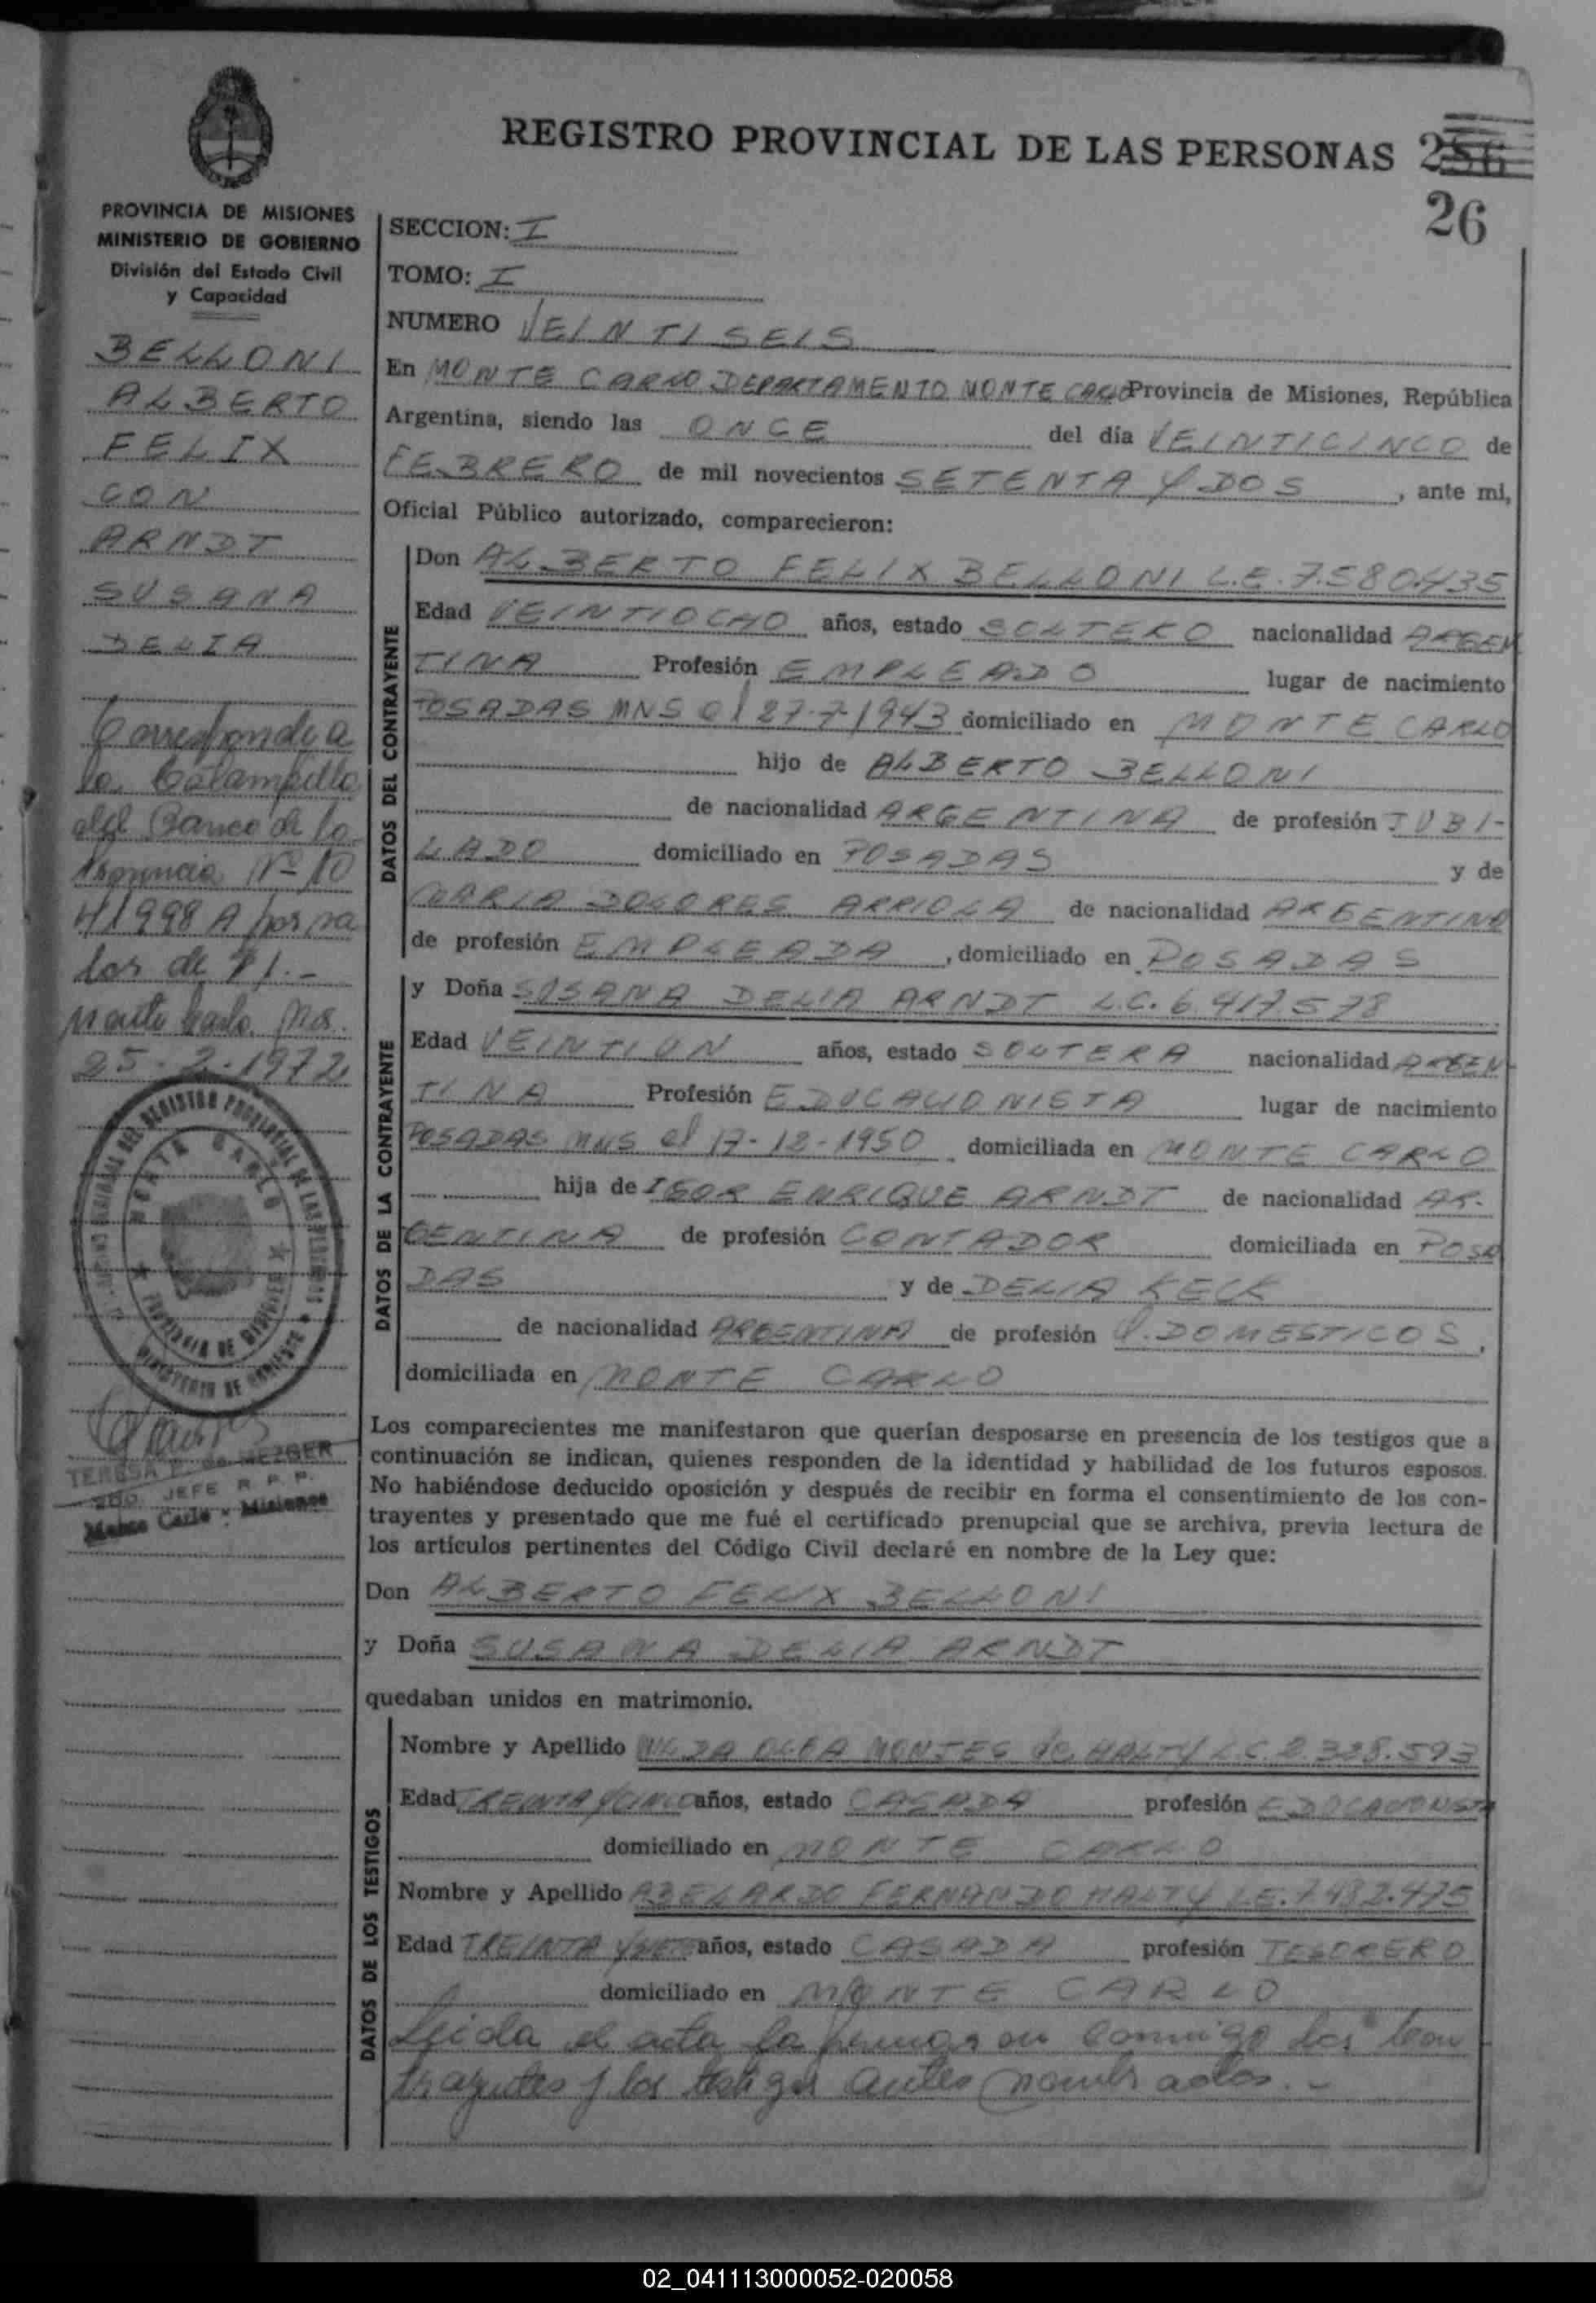 REGISTRO PROVINCIAL DE LAS PERSONAS 256
26
PROVINCIA DE MISIONES
MINISTERIO DE GOBIERNO
División del Estado Civil
y Capacidad
BELLONI
ALBERTO
FELIX
CON
ARNDT
SUSANA
DELIA
Corresponde a
la Estampilla
del Banco de la
Provincia Nº 10
41998 A por va
lor de $1.-
Monte Carlo Mns.
25-2-1972
MONTE CARLO
PROVINCIA DE MISIONES
MINISTERIO DE GOBIERNO
TERESA F. de MEZGER
2DO. JEFE R. P. P.
Monte Carlo - Misiones
SECCION: I
TOMO: I
NUMERO VEINTISEIS
En MONTE CARLO DEPARTAMENTO MONTE CARLO Provincia de Misiones, República
Argentina, siendo las ONCE del día VEINTICINCO de
FEBRERO de mil novecientos SETENTA Y DOS, ante mi,
Oficial Público autorizado, comparecieron:
DATOS DEL CONTRAYENTE
Don ALBERTO FELIX BELLONI L.E. 7.580.435
Edad VEINTIOCHO años, estado SOLTERO nacionalidad ARGEN
TINA Profesión EMPLEADO lugar de nacimiento
POSADAS MNS el 27-7-1943 domiciliado en MONTE CARLO
hijo de ALBERTO BELLONI
de nacionalidad ARGENTINA de profesión JUBI-
LADO domiciliado en POSADAS y de
MARIA DOLORES ARRIOLA de nacionalidad ARGENTINA
de profesión EMPLEADA, domiciliado en POSADAS
DATOS DE LA CONTRAYENTE
y Doña SUSANA DELIA ARNDT L.C. 6.417.578
Edad VEINTIUN años, estado SOLTERA nacionalidad ARGEN
TINA Profesión EDUCACIONISTA lugar de nacimiento
POSADAS MNS el 17-12-1950 domiciliada en MONTE CARLO
hija de IGOR ENRIQUE ARNDT de nacionalidad AR-
GENTINA de profesión CONTADOR domiciliada en POSA
DAS y de DELIA KECK
de nacionalidad ARGENTINA de profesión Q. DOMESTICOS,
domiciliada en MONTE CARLO
Los comparecientes me manifestaron que querían desposarse en presencia de los testigos que a
continuación se indican, quienes responden de la identidad y habilidad de los futuros esposos.
No habiéndose deducido oposición y después de recibir en forma el consentimiento de los con-
trayentes y presentado que me fué el certificado prenupcial que se archiva, previa lectura de
los artículos pertinentes del Código Civil declaré en nombre de la Ley que:
Don ALBERTO FELIX BELLONI
y Doña SUSANA DELIA ARNDT
quedaban unidos en matrimonio.
DATOS DE LOS TESTIGOS
Nombre y Apellido NILDA OLGA MONTES de HALTY L.C. 2.328.593
Edad TREINTA Y CINCO años, estado CASADA profesión EDUCACIONISTA
domiciliado en MONTE CARLO
Nombre y Apellido ABELARDO FERNANDO HALTY L.E. 7.482.475
Edad TREINTA Y SIETE años, estado CASADA profesión TESORERO
domiciliado en MONTE CARLO
Leida el acta la firmaron conmigo los con
trayentes y los testigos antes nombrados.-
02_041113000052-020058